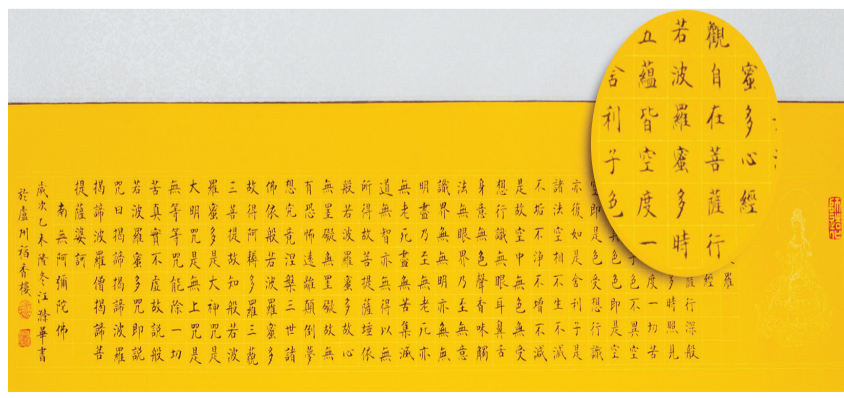 蜜多心經
觀自在菩薩行
若波羅蜜多時
五蘊皆空度一
舍利子色
羅
經
行深般
多時照見
度一切苦
色不異空
色色即是空
空即是色受想行識
亦復如是舍利子是
諸法空相不生不滅
不垢不淨不增不減
是故空中無色無受
想行識無眼耳鼻舌
身意無色聲香味觸
法無眼界乃至無意
識界無無明亦無無
明盡乃至無老死亦
無老死盡無苦集滅
道無智亦無得以無
所得故菩提薩埵依
般若波羅蜜多故心
無罣礙無罣礙故無
有恐怖遠離顛倒夢
想究竟涅槃三世諸
佛依般若波羅蜜多
故得阿耨多羅三藐
三菩提故知般若波
羅蜜多是大神咒是
大明咒是無上咒是
無等等咒能除一切
苦真實不虛故說般
若波羅蜜多咒即說
咒曰揭諦揭諦波羅
揭諦波羅僧揭諦菩
提薩婆訶
南無阿彌陀佛
歲次乙未隆冬江滌華書
於廬州稻香樓